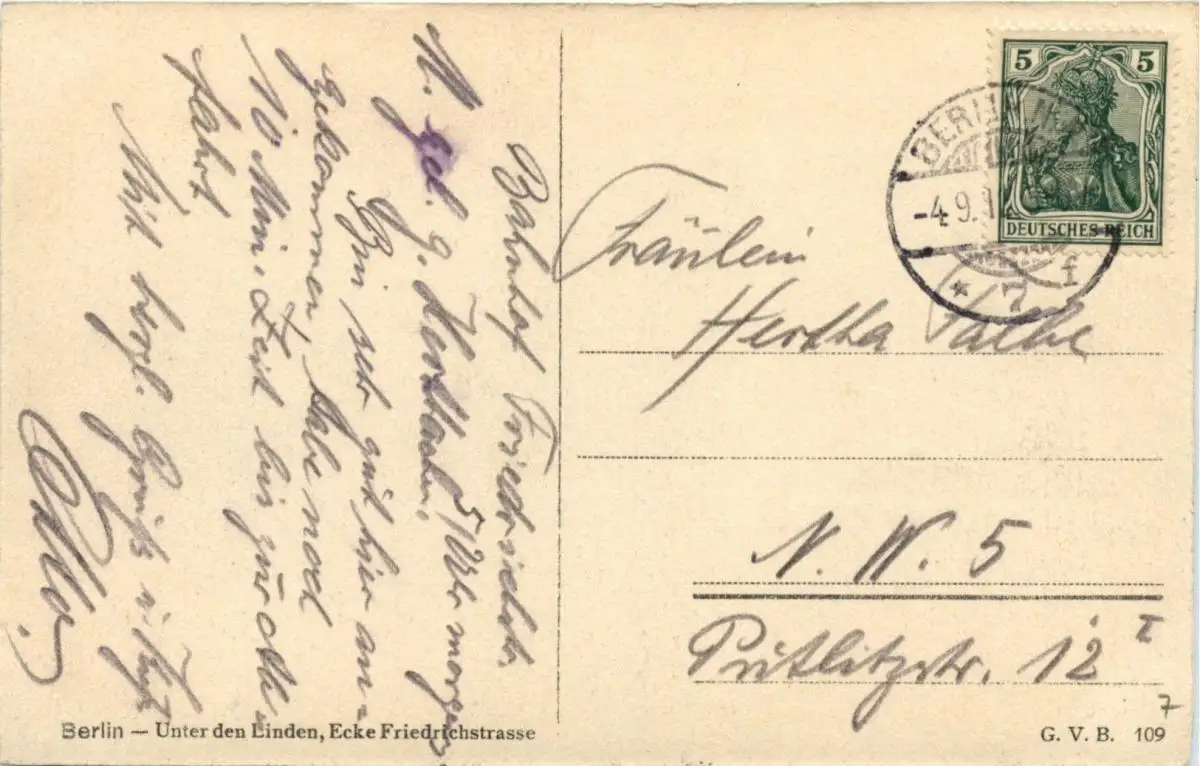 Bahnhof Friedrichstr.
5 Uhr morgens
M. gel. g. Herthachen,
Bin sehr gut hier an-
gekommen, habe noch
10 Min. Zeit bis zur
fahrt
Mit herzl. Gruß u. Kuß
Otto.
Fräulein
Hertha
N. W. 5
Putlitzstr. 12 I
5 5
DEUTSCHES REICH
BERLIN
-4.9.1
* 7 f
7
Berlin — Unter den Linden, Ecke Friedrichstrasse
G. V. B. 109